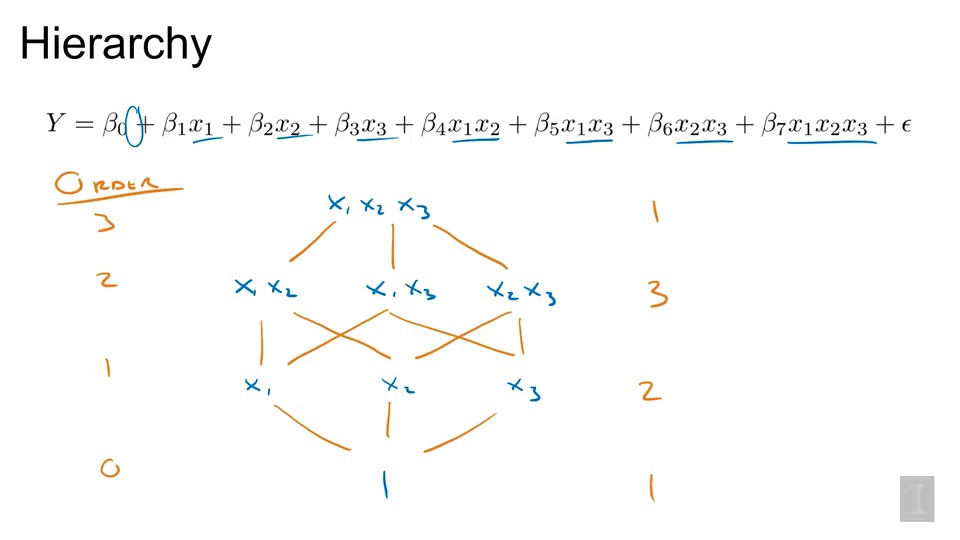 Hierarchy
Y = β₀ + β₁x₁ + β₂x₂ + β₃x₃ + β₄x₁x₂ + β₅x₁x₃ + β₆x₂x₃ + β₇x₁x₂x₃ + ϵ
ORDER
3 x₁ x₂ x₃ 1
2 x₁ x₂ x₁ x₃ x₂ x₃ 3
1 x₁ x₂ x₃ 2
0 1 1
I